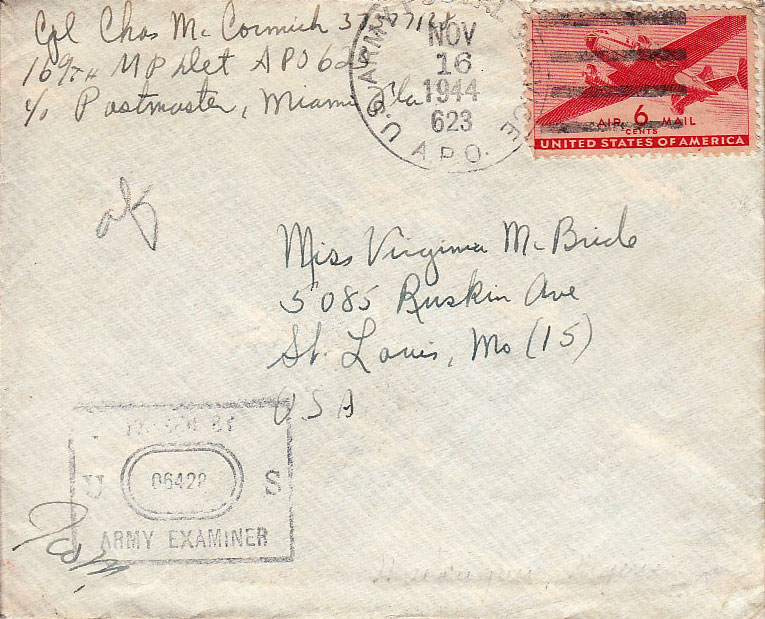 Cpl Chas McCormick
169TH MP Det APO 62
c/o Postmaster, Miami Fla
U.S. ARMY POSTAL
A.P.O.
NOV
16
1944
623
AIR 6 MAIL
CENTS
UNITED STATES OF AMERICA
Miss Virginia McBride
5085 Ruskin Ave
St. Louis, Mo (15)
USA
BY
U S
06428
ARMY EXAMINER